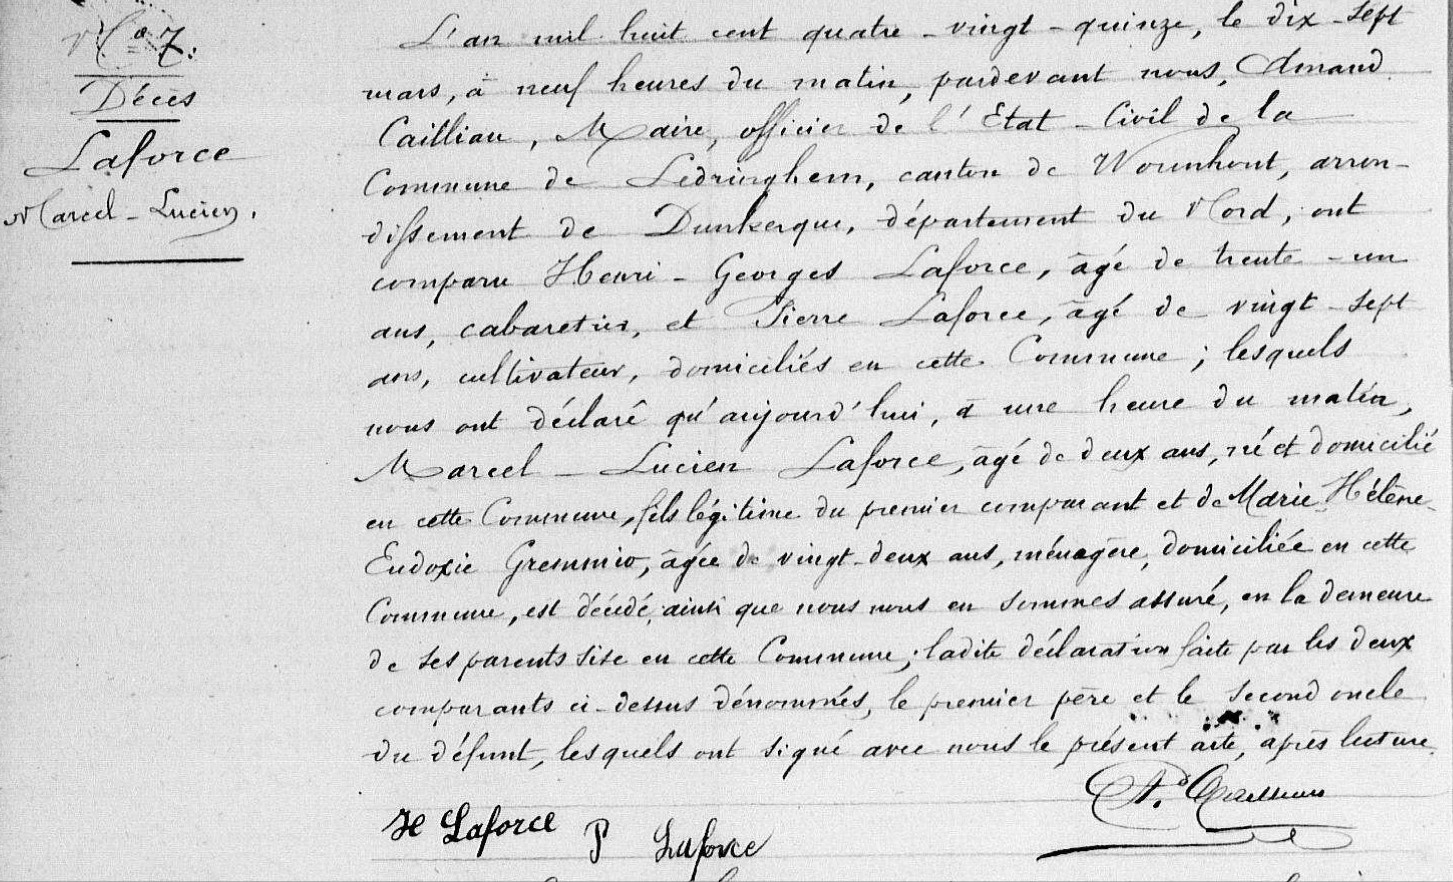 N° 7.
Décès
Laforce
Marcel - Lucien.
L'an mil huit cent quatre - vingt - quinze, le dix - sept
mars, à neuf heures du matin, pardevant nous, Amand
Cailliau, Maire, officier de l'Etat - Civil de la
Commune de Ledringhem, canton de Wormhout, arron-
dissement de Dunkerque, département du Nord, ont
comparu Henri - Georges Laforce, âgé de trente - un
ans, cabaretier, et Pierre Laforce, âgé de vingt - sept
ans, cultivateur, domiciliés en cette Commune ; lesquels
nous ont déclaré qu'aujourd'hui, à une heure du matin,
Marcel - Lucien Laforce, âgé de deux ans, né et domicilié
en cette Commune, fils légitime du premier comparant et de Marie - Hélène -
Eudoxie Gremmio, âgée de vingt - deux ans, ménagère, domiciliée en cette
Commune, est décédé, ainsi que nous nous en sommes assuré, en la demeure
de ses parents sise en cette Commune ; ladite déclaration faite par les deux
comparants ci - dessus dénommés, le premier père et le second oncle
du défunt, lesquels ont signé avec nous le présent acte, après lecture.
Ad Cailliau
H Laforce P Laforce